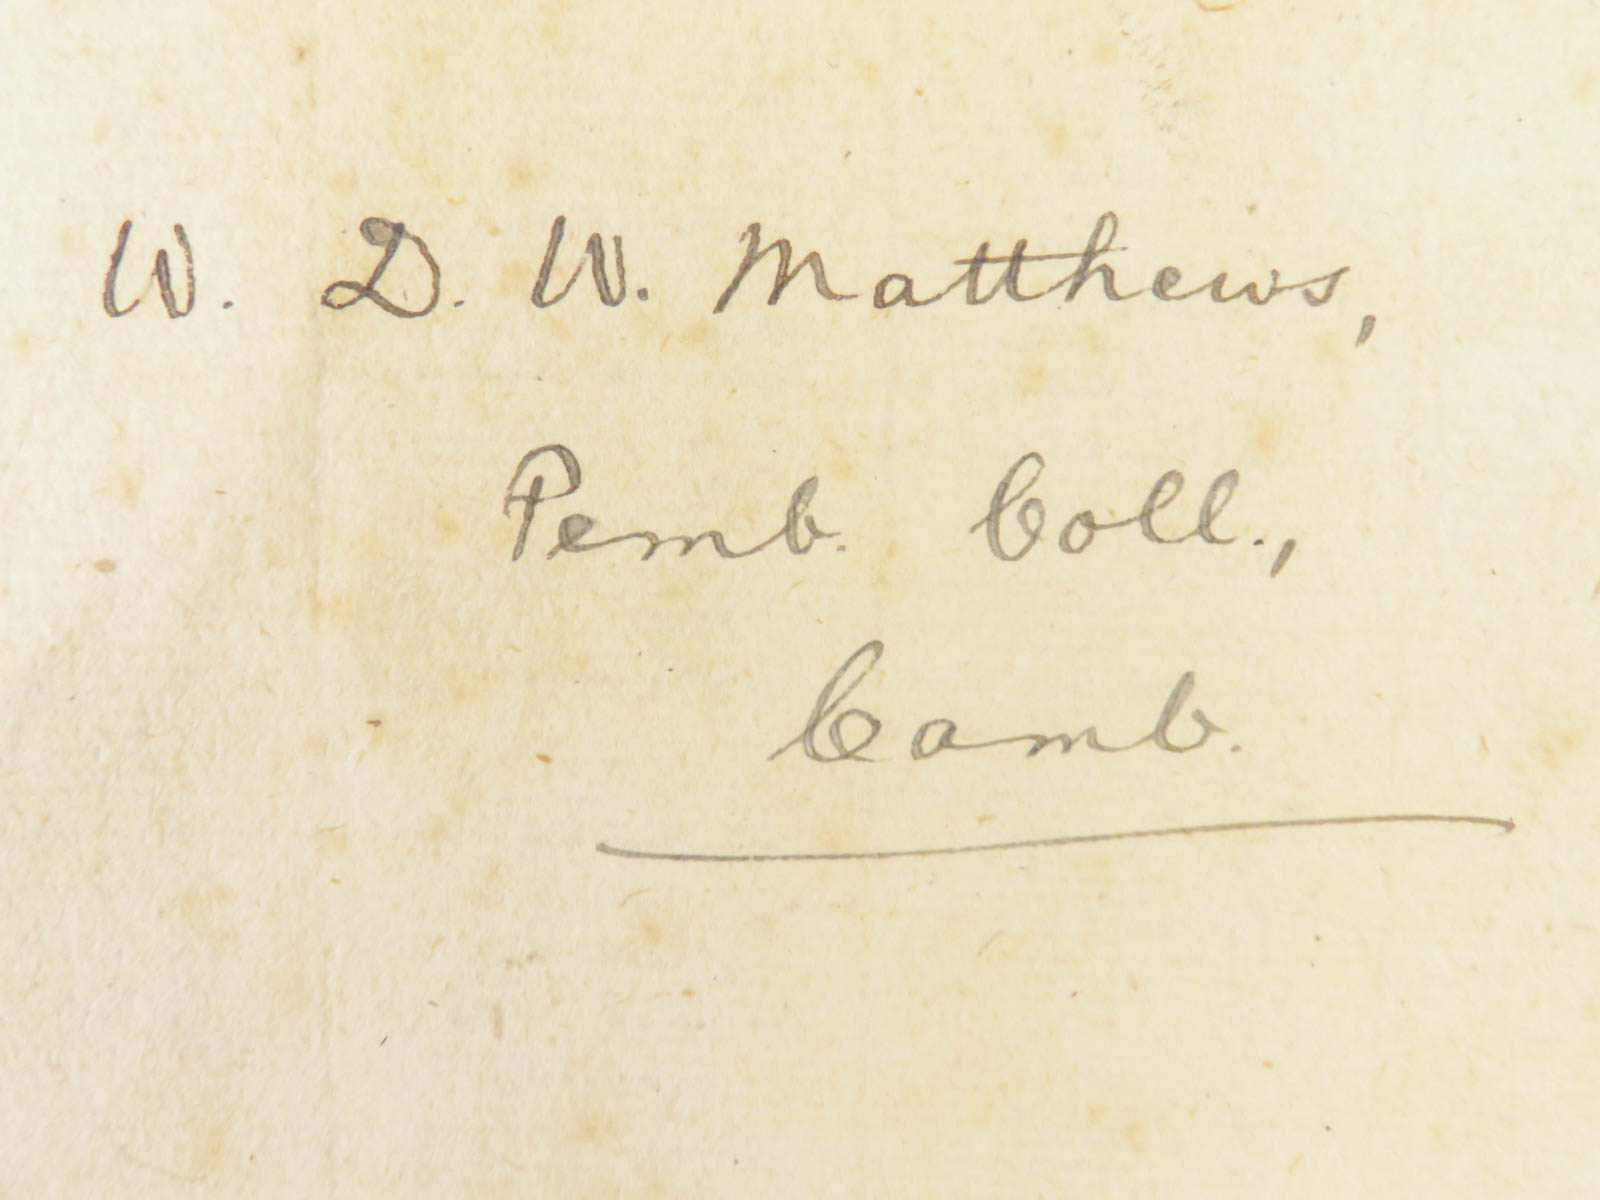 W. D. W. Matthews,
Pemb. Coll.,
Camb.